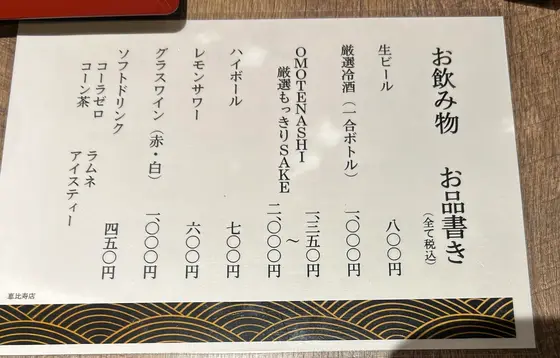 お飲み物 お品書き
(全て税込)
生ビール 八〇〇円
厳選冷酒(一合ボトル) 一、〇〇〇円
OMOTENASHI
厳選もっきりSAKE
一、三五〇円
〜
二、〇〇〇円
ハイボール 七〇〇円
レモンサワー 六〇〇円
グラスワイン(赤・白) 一、〇〇〇円
ソフトドリンク 四五〇円
コーラゼロ ラムネ
コーン茶 アイスティー
恵比寿店